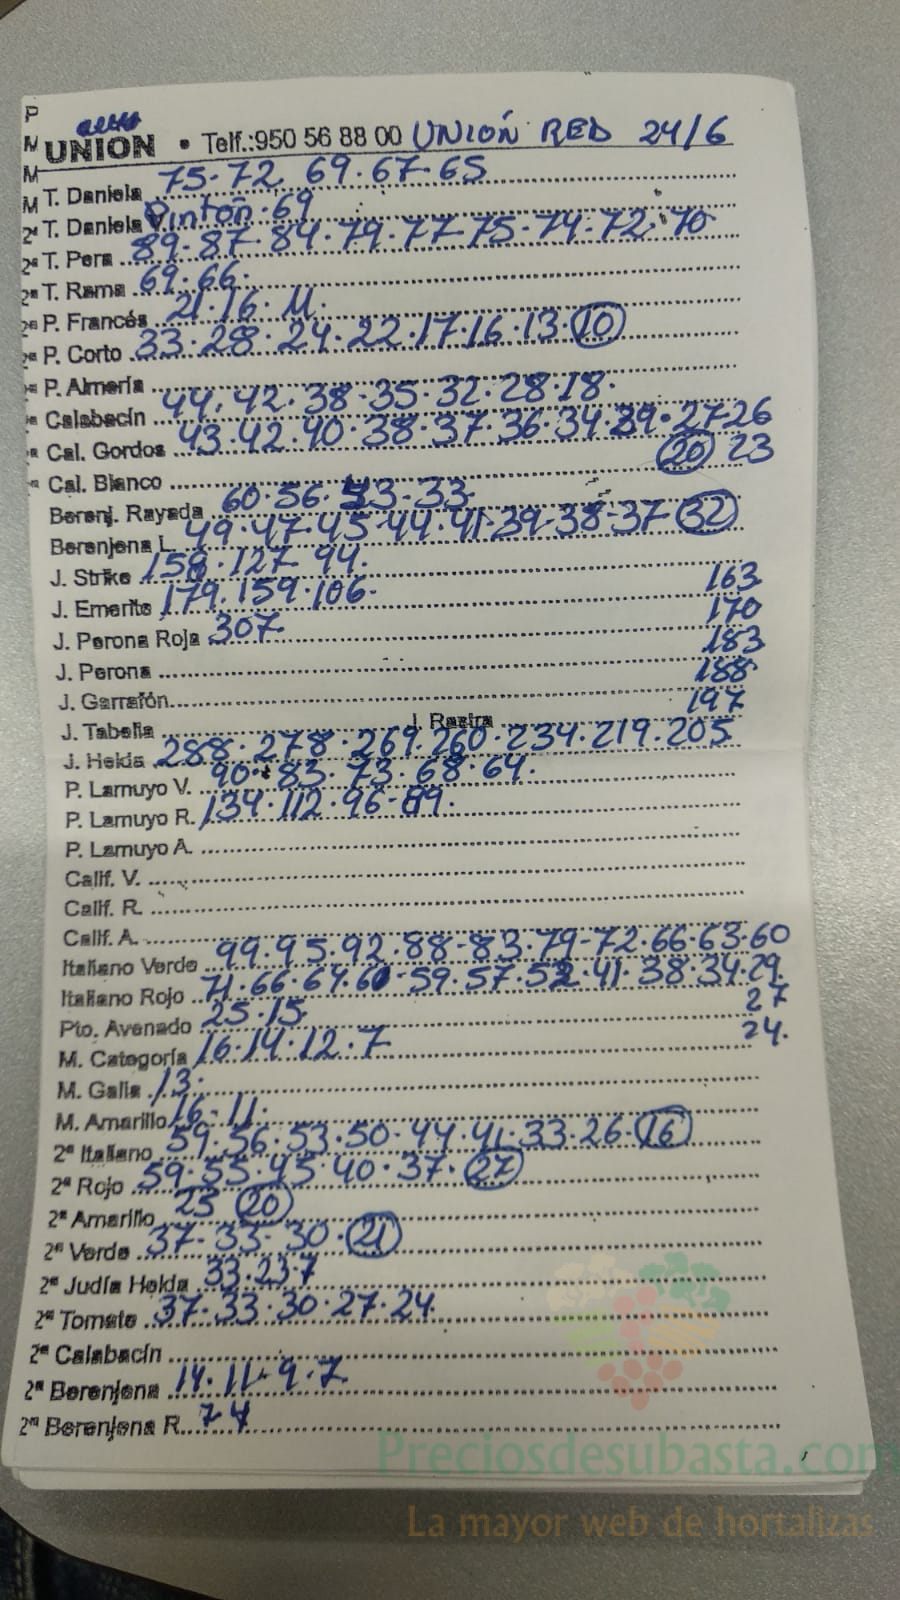 P
M UNION • Telf.:950 56 88 00 UNIÓN RED 24/6
M T. Daniela 75-72 69-67-65
M T. Daniela Pintón-69
2ª T. Pera 89-87-84-79-77-75-74-72-70
2ª T. Rama 69-66-
2ª P. Francés 21-16-11-
P. Corto 33-28-24-22-17-16-13-10
P. Almería
Calabacín 44-42-38-35-32-28-18-
Cal. Gordos 43-42-40-38-37-36-34-29-27-26
20 23
Cal. Blanco
Berenj. Rayada 60-56-53-33-
Berenjena L. 49-47-45-44-41-39-38-37 32
J. Strike 158-127-94-
J. Emerite 179-159-106- 163
J. Perona Roja 307 170
J. Perona 183
J. Garrafón 188
J. Tabella J. Rastra 197
J. Helda 288-278-269-260-234-219-205
P. Lamuyo V. 90-83-73-68-64-
P. Lamuyo R. 134-112-96-89-
P. Lamuyo A.
Calif. V.
Calif. R.
Calif. A.
Italiano Verde 99-95-92-88-83-79-72-66-63-60
Italiano Rojo 71-66-64-60-59-57-52-41-38-34-29
Pto. Avenado 25-15 27
M. Categoría 16-14-12-7 24.
M. Galia 13-
M. Amarillo 16-11-
2ª Italiano 59-56-53-50-44-41-33-26-16
2ª Rojo 59-55-45-40-37-27
2ª Amarillo 25 20
2ª Verde 37-33-30-21
2ª Judía Helda 33-23-7
2ª Tomate 37-33-30-27-24
2ª Calabacín
2ª Berenjena 14-11-9-7
2ª Berenjena R. 7-4
Preciosdesubasta.com
La mayor web de hortalizas